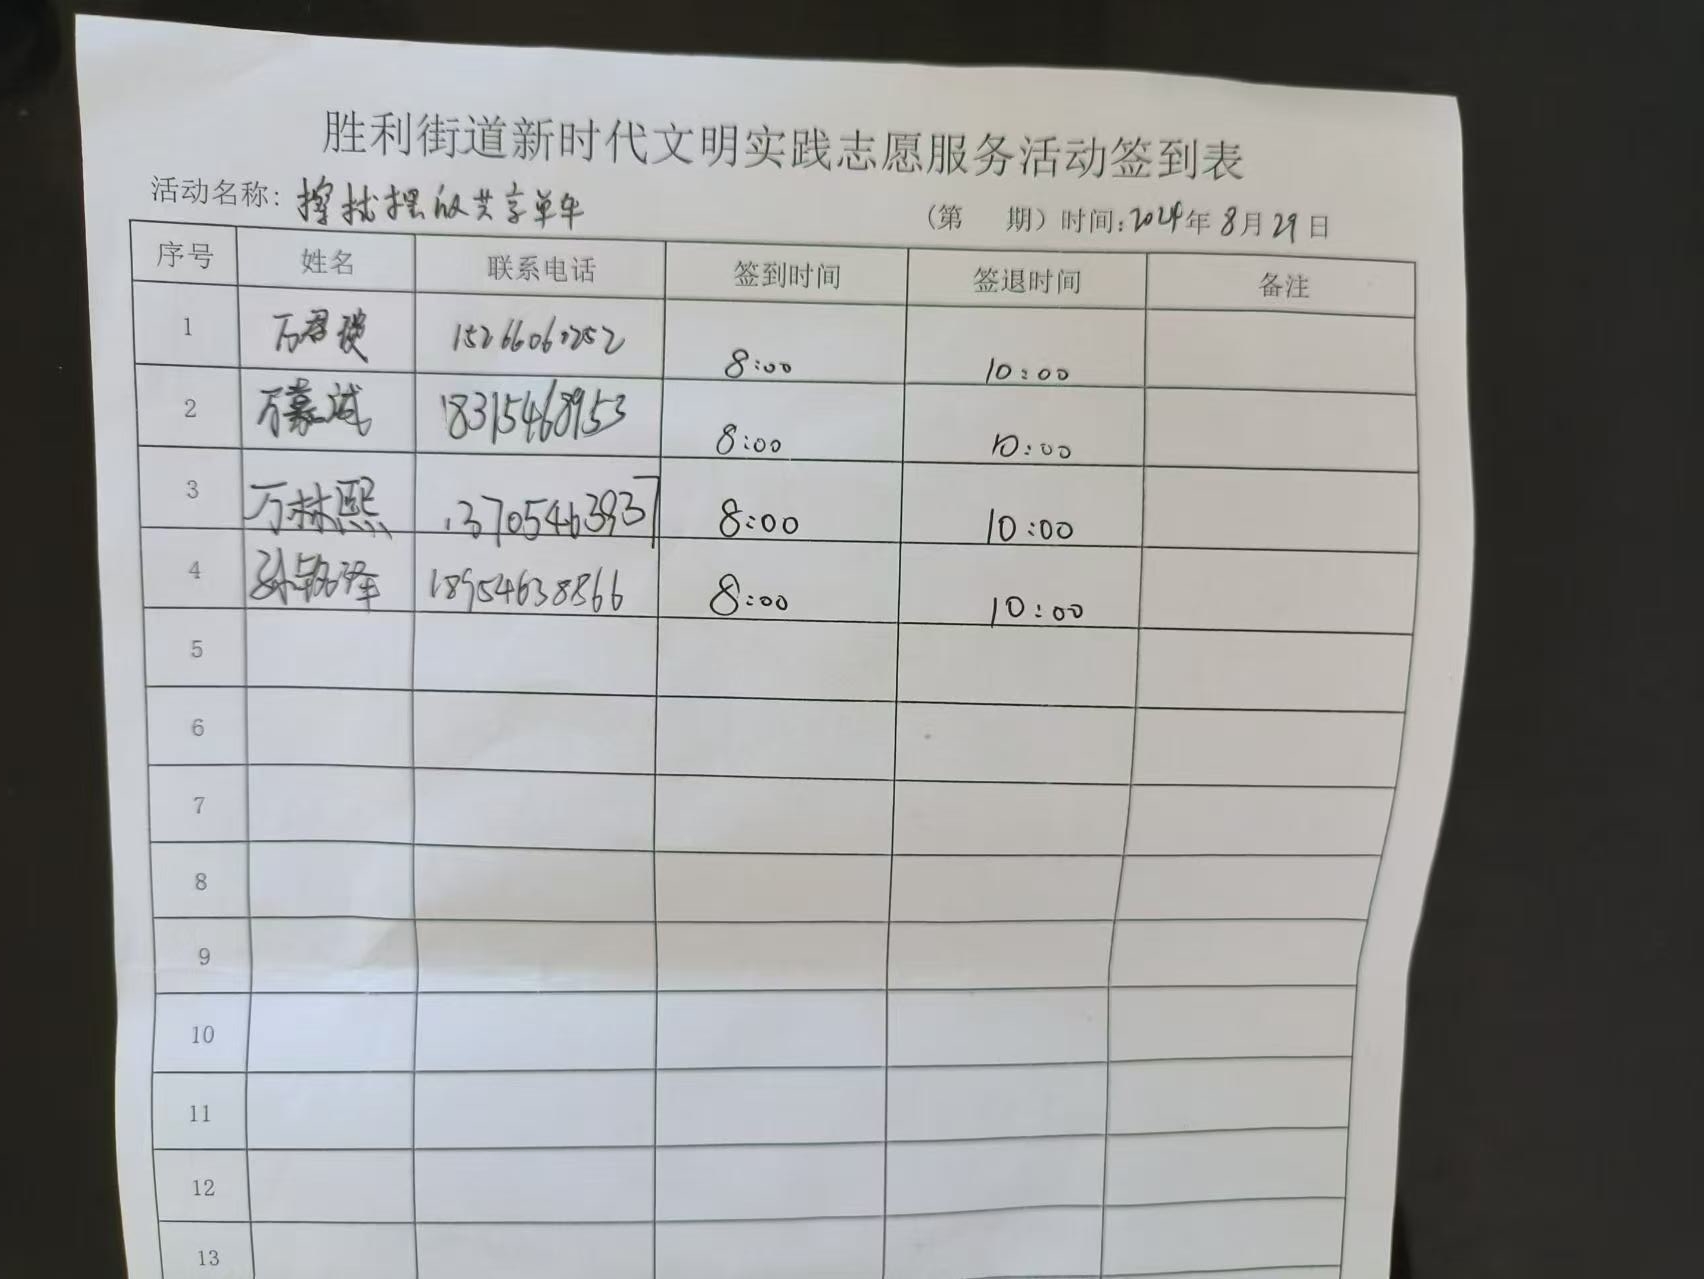 胜利街道新时代文明实践志愿服务活动签到表
活动名称：擦拭摆放共享单车 （第 期）时间：2024年8月29日
序号 姓名 联系电话 签到时间 签退时间 备注
1 万君 15266060252 8:00 10:00
2 万嘉诚 18315468953 8:00 10:00
3 万林熙 13705463937 8:00 10:00
4 孙铭泽 18954638866 8:00 10:00
5
6
7
8
9
10
11
12
13